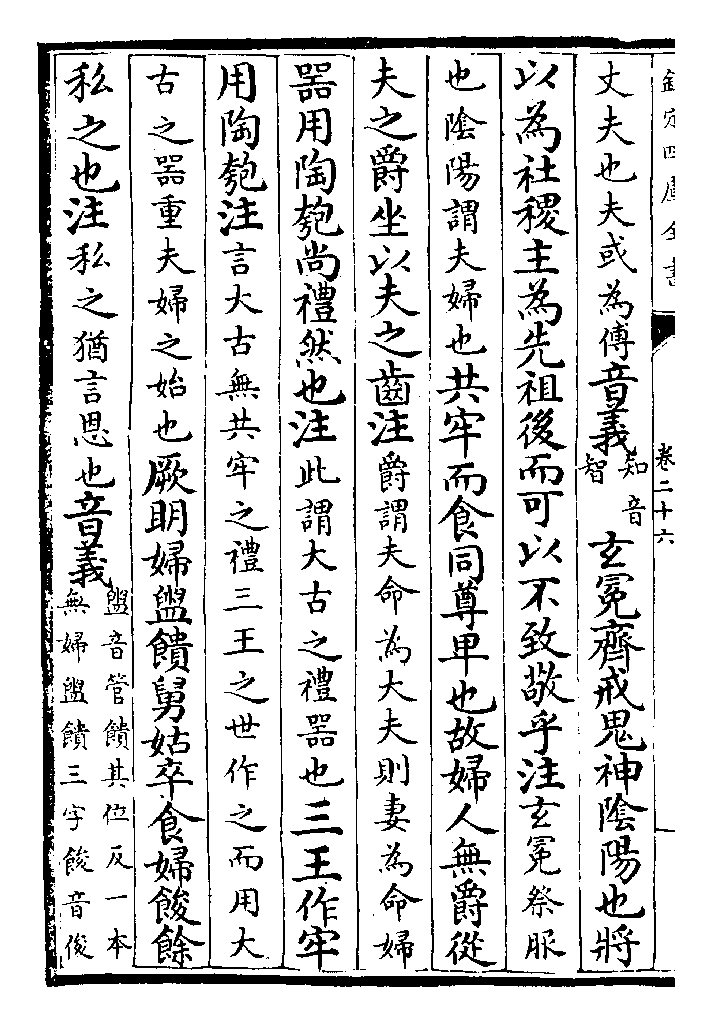 欽定四庫全書
卷二十六
丈夫也夫或為傅音義知音智玄冕齊戒鬼神陰陽也將
以為社稷主為先祖後而可以不致敬乎注玄冕祭服
也陰陽謂夫婦也共牢而食同尊卑也故婦人無爵從
夫之爵坐以夫之齒注爵謂夫命為大夫則妻為命婦
器用陶匏尚禮然也注此謂大古之禮器也三王作牢
用陶匏注言大古無共牢之禮三王之世作之而用大
古之器重夫婦之始也厥明婦盥饋舅姑卒食婦餕餘
私之也注私之猶言恩也音義盥音管饋其位反一本
無婦盥饋三字餕音俊